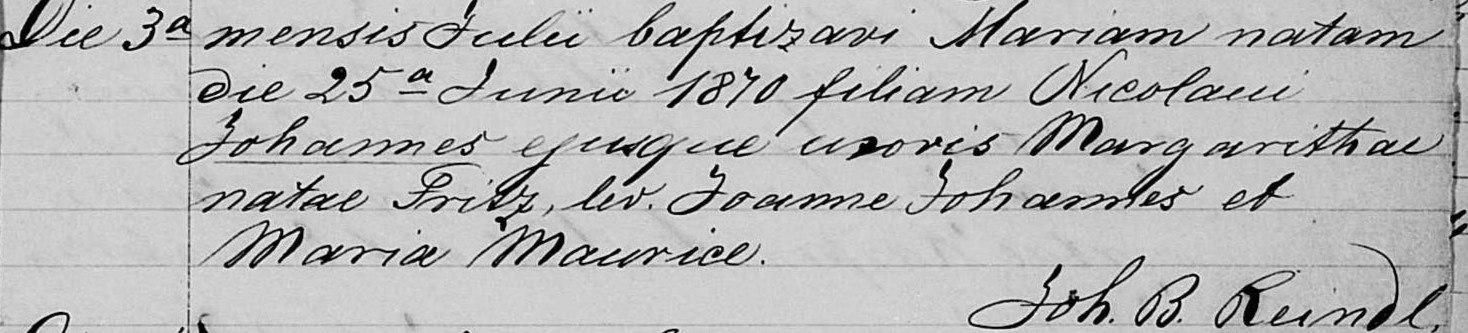 Die 3a mensis Julii baptizavi Mariam natam
die 25a Junii 1870 filiam Nicolaui
Johannes ejusque uxoris Margarithae
natae Fritz, lev. Joanne Johannes et
Maria Maurice.
Joh. B. Reindl